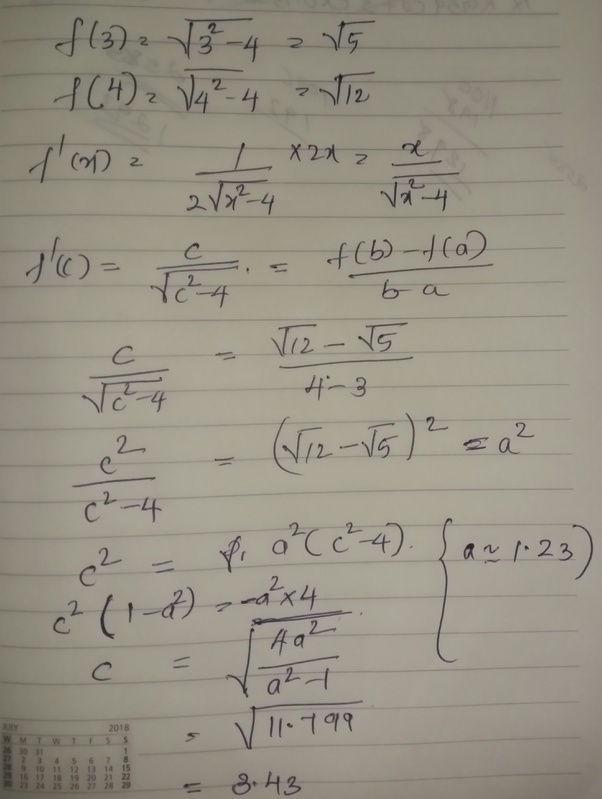 f(3) = √(3²-4) = √5
f(4) = √(4²-4) = √12
f'(x) = 1/(2√(x²-4)) × 2x = x/√(x²-4)
f'(c) = c/√(c²-4) . = (f(b) - f(a))/(b-a)
c/√(c²-4) = (√12 - √5)/(4-3)
c²/(c²-4) = (√12 - √5)² = a²
c² = a²(c²-4). { a ≃ 1.23 )
c²(1-a²) = -a² × 4
c = √(4a²/(a²-1))
= √11.799
= 3.43
JULY 2018
W M T W T F S S
26 30 31 1
27 2 3 4 5 6 7 8
28 9 10 11 12 13 14 15
29 16 17 18 19 20 21 22
30 23 24 25 26 27 28 29